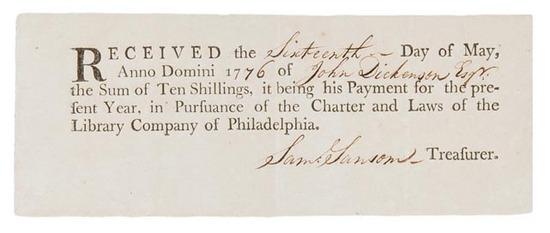 RECEIVED the Sixteenth Day of May,
Anno Domini 1776 of John Dickenson Esqr.
the Sum of Ten Shillings, it being his Payment for the pre-
ſent Year, in Purſuance of the Charter and Laws of the
Library Company of Philadelphia.
Saml. Sansom Treaſurer.